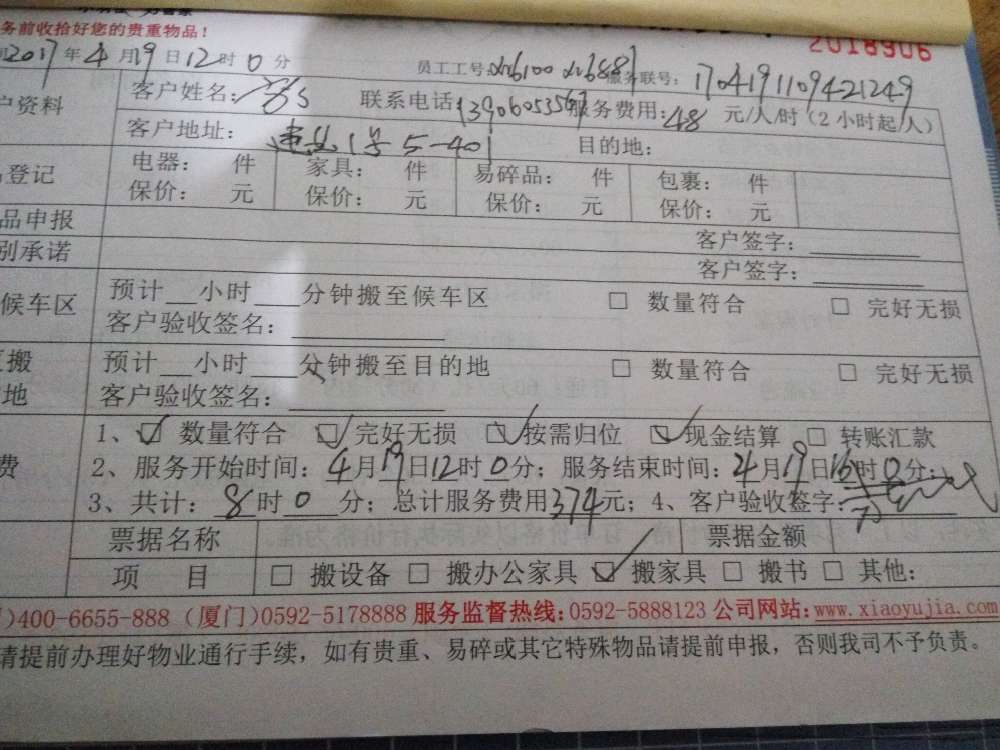 务前收拾好您的贵重物品!
2018906
2017年4月19日12时0分
员工工号: 服务联号: 1704191109421249
户资料 客户姓名: 联系电话: 服务费用:48元/人/时(2小时起/人)
客户地址: 1号5-401 目的地:
登记 电器: 件 家具: 件 易碎品: 件 包裹: 件
保价: 元 保价: 元 保价: 元 保价: 元
品申报 客户签字:
别承诺 客户签字:
候车区 预计__小时__分钟搬至候车区 □ 数量符合 □ 完好无损
客户验收签名:
搬 预计__小时__分钟搬至目的地 □ 数量符合 □ 完好无损
地 客户验收签名:
1、☑ 数量符合 ☑ 完好无损 ☑ 按需归位 ☑ 现金结算 □ 转账汇款
费 2、服务开始时间:4月19日12时0分;服务结束时间:4月19日16时0分;
3、共计:8时0分;总计服务费用374元;4、客户验收签字:
票据名称 票据金额
项 目 □ 搬设备 □ 搬办公家具 ☑ 搬家具 □ 搬书 □ 其他:
)400-6655-888 (厦门)0592-5178888 服务监督热线:0592-5888123 公司网站:www.xiaoyujia.com
请提前办理好物业通行手续，如有贵重、易碎或其它特殊物品请提前申报，否则我司不予负责。